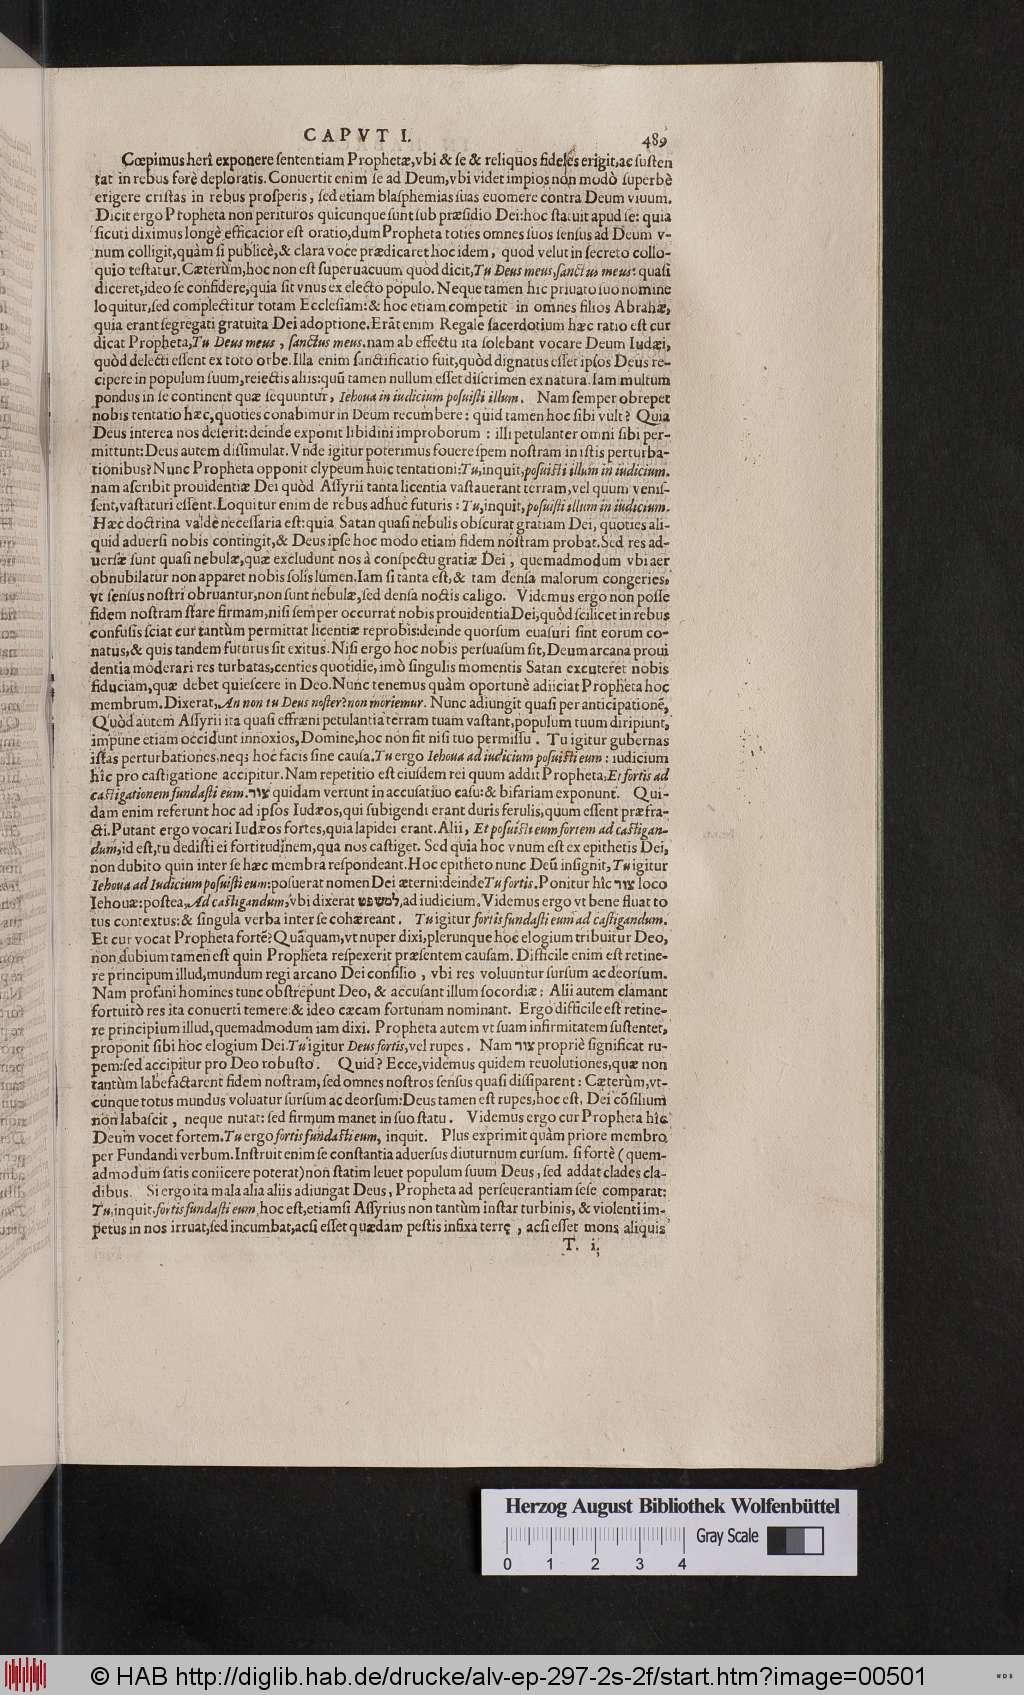 CAPVT I.
489
Cœpimus heri exponere ſententiam Prophetæ, vbi & ſe & reliquos fideles erigit, ac ſuſten
tat in rebus ferè deploratis. Conuertit enim ſe ad Deum, vbi videt impios non modò ſuperbè
erigere criſtas in rebus proſperis, ſed etiam blaſphemias ſuas euomere contra Deum viuum.
Dicit ergo Propheta non perituros quicunque ſunt ſub præſidio Dei: hoc ſtatuit apud ſe: quia
ſicuti diximus longè efficacior eſt oratio, dum Propheta toties omnes ſuos ſenſus ad Deum v-
num colligit, quàm ſi publicè, & clara voce prædicaret hoc idem, quod velut in ſecreto collo-
quio teſtatur. Cæterùm, hoc non eſt ſuperuacuum quòd dicit, Tu Deus meus, ſanctus meus: quaſi
diceret, ideo ſe confidere, quia ſit vnus ex electo populo. Neque tamen hîc priuato ſuo nomine
loquitur, ſed complectitur totam Eccleſiam: & hoc etiam competit in omnes filios Abrahæ,
quia erant ſegregati gratuita Dei adoptione. Erāt enim Regale ſacerdotium hæc ratio eſt cur
dicat Propheta, Tu Deus meus, ſanctus meus. nam ab effectu ita ſolebant vocare Deum Iudæi,
quòd delecti eſſent ex toto orbe. Illa enim ſanctificatio fuit, quòd dignatus eſſet ipſos Deus re-
cipere in populum ſuum, reiectis aliis: quū tamen nullum eſſet diſcrimen ex natura. Iam multum
pondus in ſe continent quæ ſequuntur, Iehoua in iudicium poſuiſti illum. Nam ſemper obrepet
nobis tentatio hæc, quoties conabimur in Deum recumbere: quid tamen hoc ſibi vult? Quia
Deus interea nos deſerit: deinde exponit libidini improborum: illi petulanter omni ſibi per-
mittunt: Deus autem diſſimulat. Vnde igitur poterimus fouere ſpem noſtram in iſtis perturba-
tionibus? Nunc Propheta opponit clypeum huic tentationi: Tu, inquit, poſuiſti illum in iudicium.
nam aſcribit prouidentiæ Dei quòd Aſſyrii tanta licentia vaſtauerant terram, vel quum veniſ-
ſent, vaſtaturi eſſent. Loquitur enim de rebus adhuc futuris: Tu, inquit, poſuiſti illum in iudicium.
Hæc doctrina valde neceſſaria eſt: quia Satan quaſi nebulis obſcurat gratiam Dei, quoties ali-
quid aduerſi nobis contingit, & Deus ipſe hoc modo etiam fidem noſtram probat. Sed res ad-
uerſæ ſunt quaſi nebulæ, quæ excludunt nos à conſpectu gratiæ Dei, quemadmodum vbi aer
obnubilatur non apparet nobis ſolis lumen. Iam ſi tanta eſt, & tam denſa malorum congeries,
vt ſenſus noſtri obruantur, non ſunt nebulæ, ſed denſa noctis caligo. Videmus ergo non poſſe
fidem noſtram ſtare firmam, niſi ſemper occurrat nobis prouidentia Dei, quòd ſcilicet in rebus
confuſis ſciat cur tantùm permittat licentiæ reprobis: deinde quorſum euaſuri ſint eorum co-
natus, & quis tandem futurus ſit exitus. Niſi ergo hoc nobis perſuaſum ſit, Deum arcana proui
dentia moderari res turbatas, centies quotidie, imò ſingulis momentis Satan excuteret nobis
fiduciam, quæ debet quieſcere in Deo. Nunc tenemus quàm oportunè adiiciat Propheta hoc
membrum. Dixerat, An non tu Deus noſter? non moriemur. Nunc adiungit quaſi per anticipationē,
Quòd autem Aſſyrii ita quaſi effræni petulantia terram tuam vaſtant, populum tuum diripiunt,
impune etiam occidunt innoxios, Domine, hoc non fit niſi tuo permiſſu. Tu igitur gubernas
iſtas perturbationes, neq; hoc facis ſine cauſa. Tu ergo Iehoua ad iudicium poſuiſti eum: iudicium
hîc pro caſtigatione accipitur. Nam repetitio eſt eiuſdem rei quum addit Propheta, Et fortis ad
caſtigationem fundaſti eum. צור quidam vertunt in accuſatiuo caſu: & bifariam exponunt. Qui-
dam enim referunt hoc ad ipſos Iudæos, qui ſubigendi erant duris ferulis, quum eſſent præfra-
cti. Putant ergo vocari Iudæos fortes, quia lapidei erant. Alii, Et poſuiſti eum fortem ad caſtigan-
dum, id eſt, tu dediſti ei fortitudinem, qua nos caſtiget. Sed quia hoc vnum eſt ex epithetis Dei,
non dubito quin inter ſe hæc membra reſpondeant. Hoc epitheto nunc Deū inſignit, Tu igitur
Iehoua ad Iudicium poſuiſti eum: poſuerat nomen Dei æterni: deinde Tu fortis. Ponitur hîc צור loco
Iehouæ: poſtea, Ad caſtigandum, vbi dixerat למשפט, ad iudicium. Videmus ergo vt bene fluat to
tus contextus: & ſingula verba inter ſe cohæreant. Tu igitur fortis fundaſti eum ad caſtigandum.
Et cur vocat Propheta fortē? Quāquam, vt nuper dixi, plerunque hoc elogium tribuitur Deo,
non dubium tamen eſt quin Propheta reſpexerit præſentem cauſam. Difficile enim eſt retine-
re principum illud, mundum regi arcano Dei conſilio, vbi res voluuntur ſurſum ac deorſum.
Nam profani homines tunc obſtrepunt Deo, & accuſant illum ſocordiæ: Alii autem clamant
fortuitò res ita conuerti temere: & ideo cæcam fortunam nominant. Ergo difficile eſt retine-
re principium illud, quemadmodum iam dixi. Propheta autem vt ſuam infirmitatem ſuſtentet,
proponit ſibi hoc elogium Dei. Tu igitur Deus fortis, vel rupes. Nam צור propriè ſignificat ru-
pem: ſed accipitur pro Deo robuſto. Quid? Ecce, videmus quidem reuolutiones, quæ non
tantùm labefactarent fidem noſtram, ſed omnes noſtros ſenſus quaſi diſſiparent: Cæterùm, vt-
cunque totus mundus voluatur ſurſum ac deorſum: Deus tamen eſt rupes, hoc eſt, Dei cōſilium
non labaſcit, neque nutat: ſed firmum manet in ſuo ſtatu. Videmus ergo cur Propheta hîc
Deum vocet fortem. Tu ergo fortis fundaſti eum, inquit. Plus exprimit quàm priore membro
per Fundandi verbum. Inſtruit enim ſe conſtantia aduerſus diuturnum curſum. ſi fortè (quem-
admodum ſatis coniicere poterat) non ſtatim leuet populum ſuum Deus, ſed addat clades cla-
dibus. Si ergo ita mala alia aliis adiungat Deus, Propheta ad perſeuerantiam ſeſe comparat:
Tu, inquit, fortis fundaſti eum, hoc eſt, etiamſi Aſſyrius non tantùm inſtar turbinis, & violenti im-
petus in nos irruat, ſed incumbat, acſi eſſet quædam peſtis infixa terrę, acſi eſſet mons aliquis
T. i.
Herzog August Bibliothek Wolfenbüttel
Gray Scale
0 1 2 3 4
© HAB http://diglib.hab.de/drucke/alv-ep-297-2s-2f/start.htm?image=00501